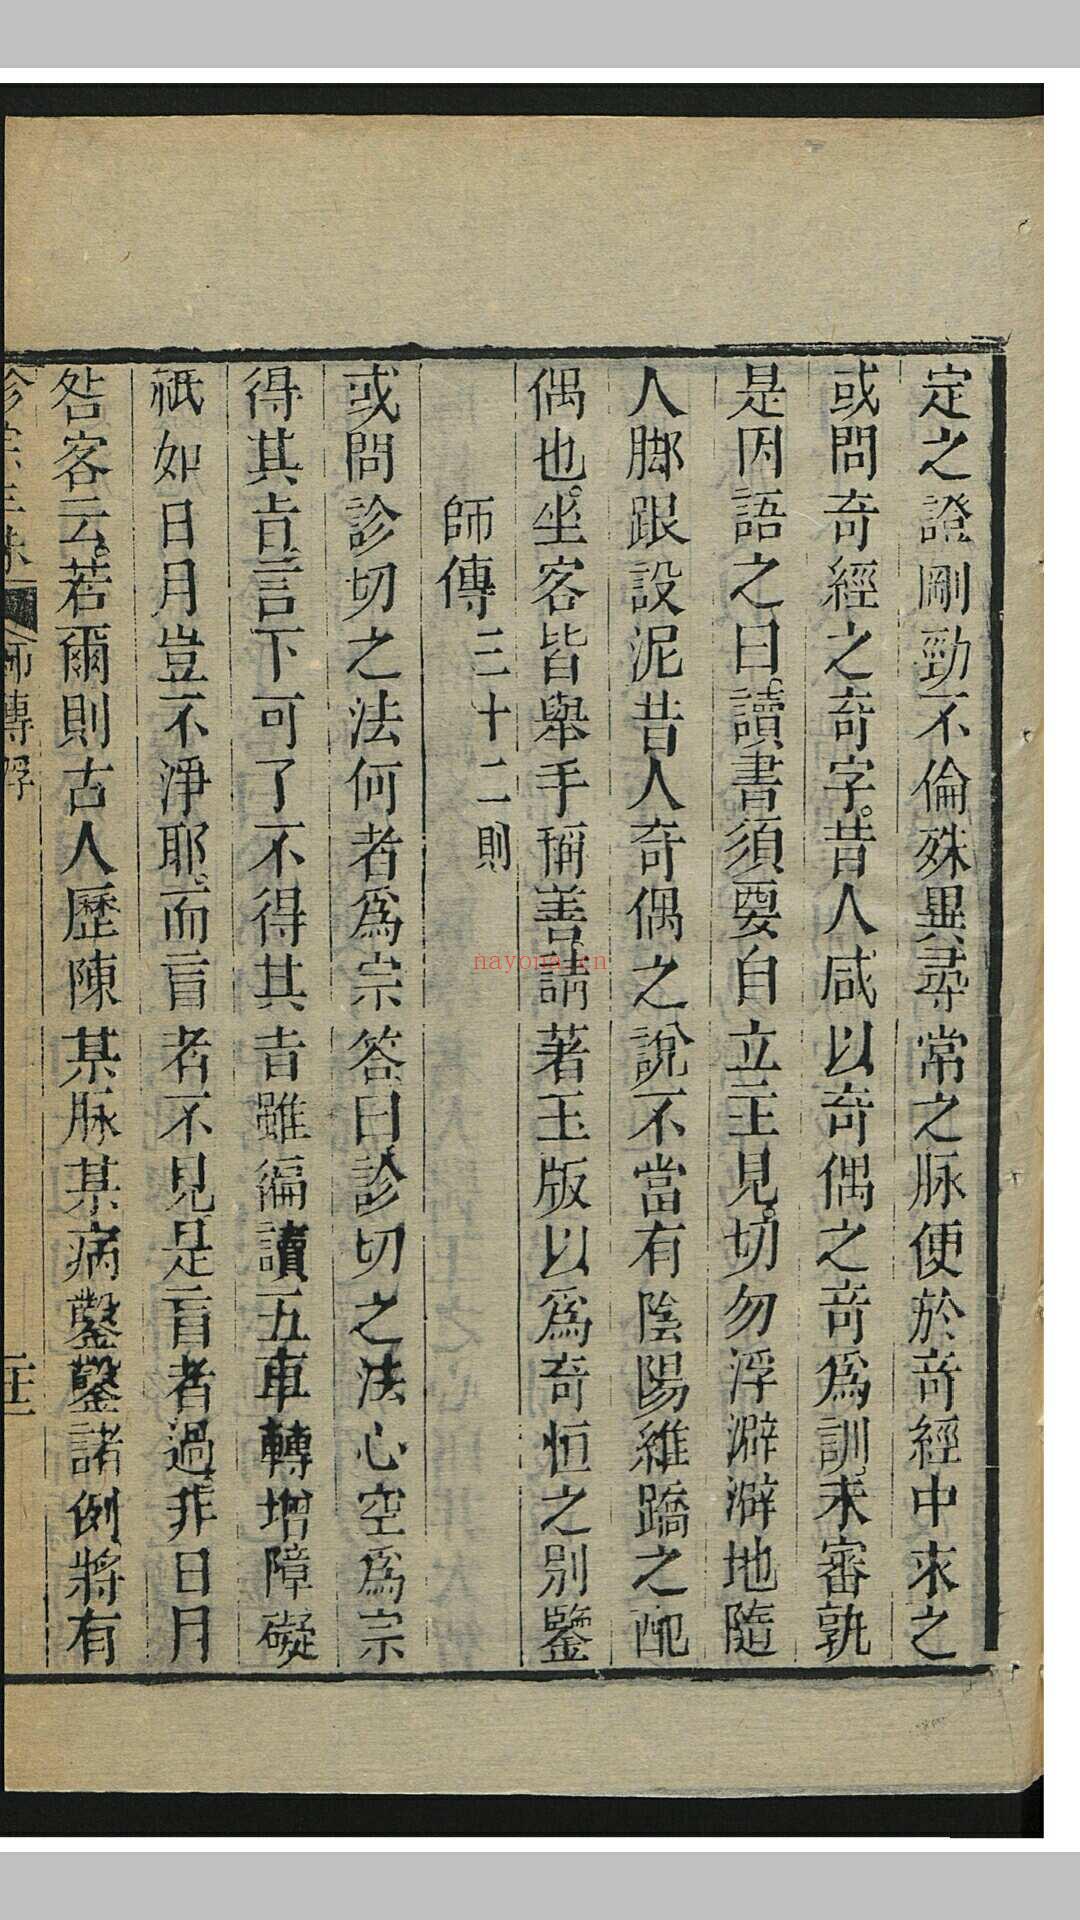 定之證剛勁不倫殊異尋常之脈便於奇經中求之
或問奇經之奇字。昔人咸以奇偶之奇爲訓。未審孰
是因語之曰。讀書須要自立主見。切勿浮澼澼地隨
人脚跟設泥昔人奇偶之說不當有陰陽維蹻之配
偶也。坐客皆舉手稱善。請著玉版以爲奇恒之別鑒
師傳三十二則
或問診切之法何者爲宗答曰診切之法心空爲宗
得其旨言下可了不得其旨雖徧讀五車轉增障礙
祇如日月豈不淨耶。而盲者不見是盲者過。非日月
咎客云。若爾則古人歷陳某脈某病鑿鑿諸例將有
診宗三昧 師傳 二十三
nayona.cn